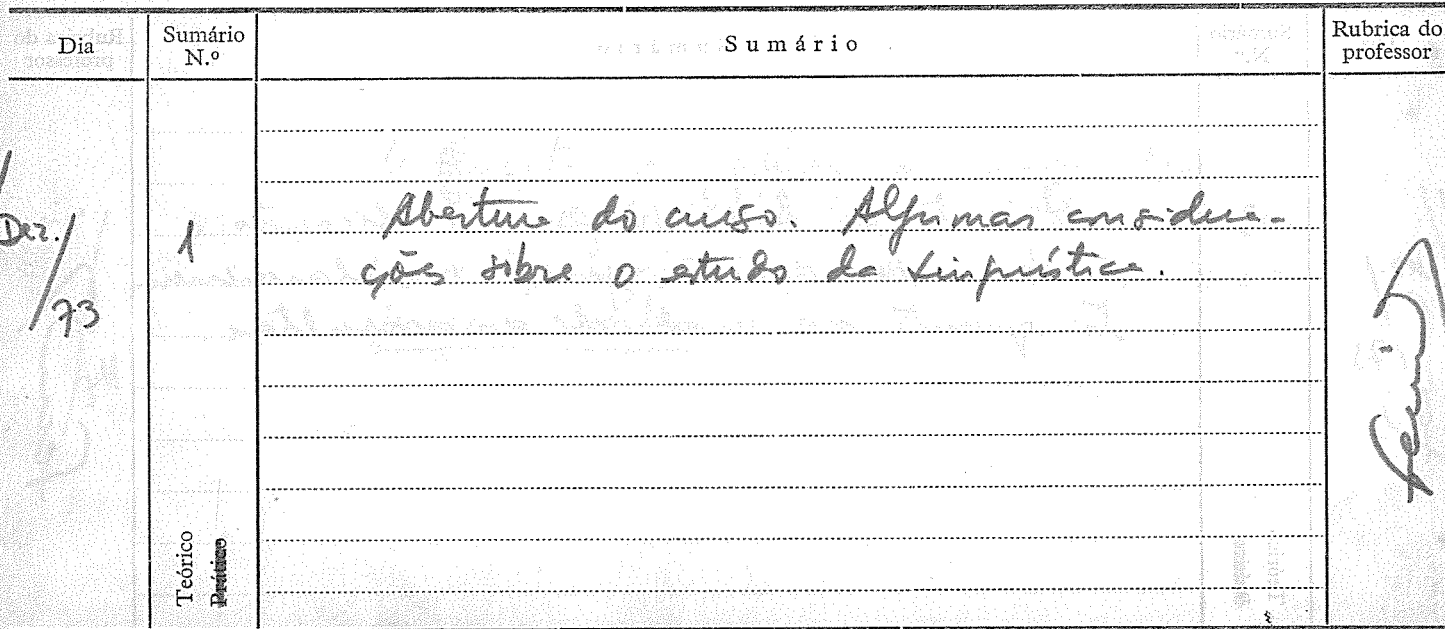 Dia
Sumário N.º
Sumário
Rubrica do professor
Dez./73
1
Abertura do curso. Algumas considera-
ções sobre o estudo da Linguística.
Teórico
Prático